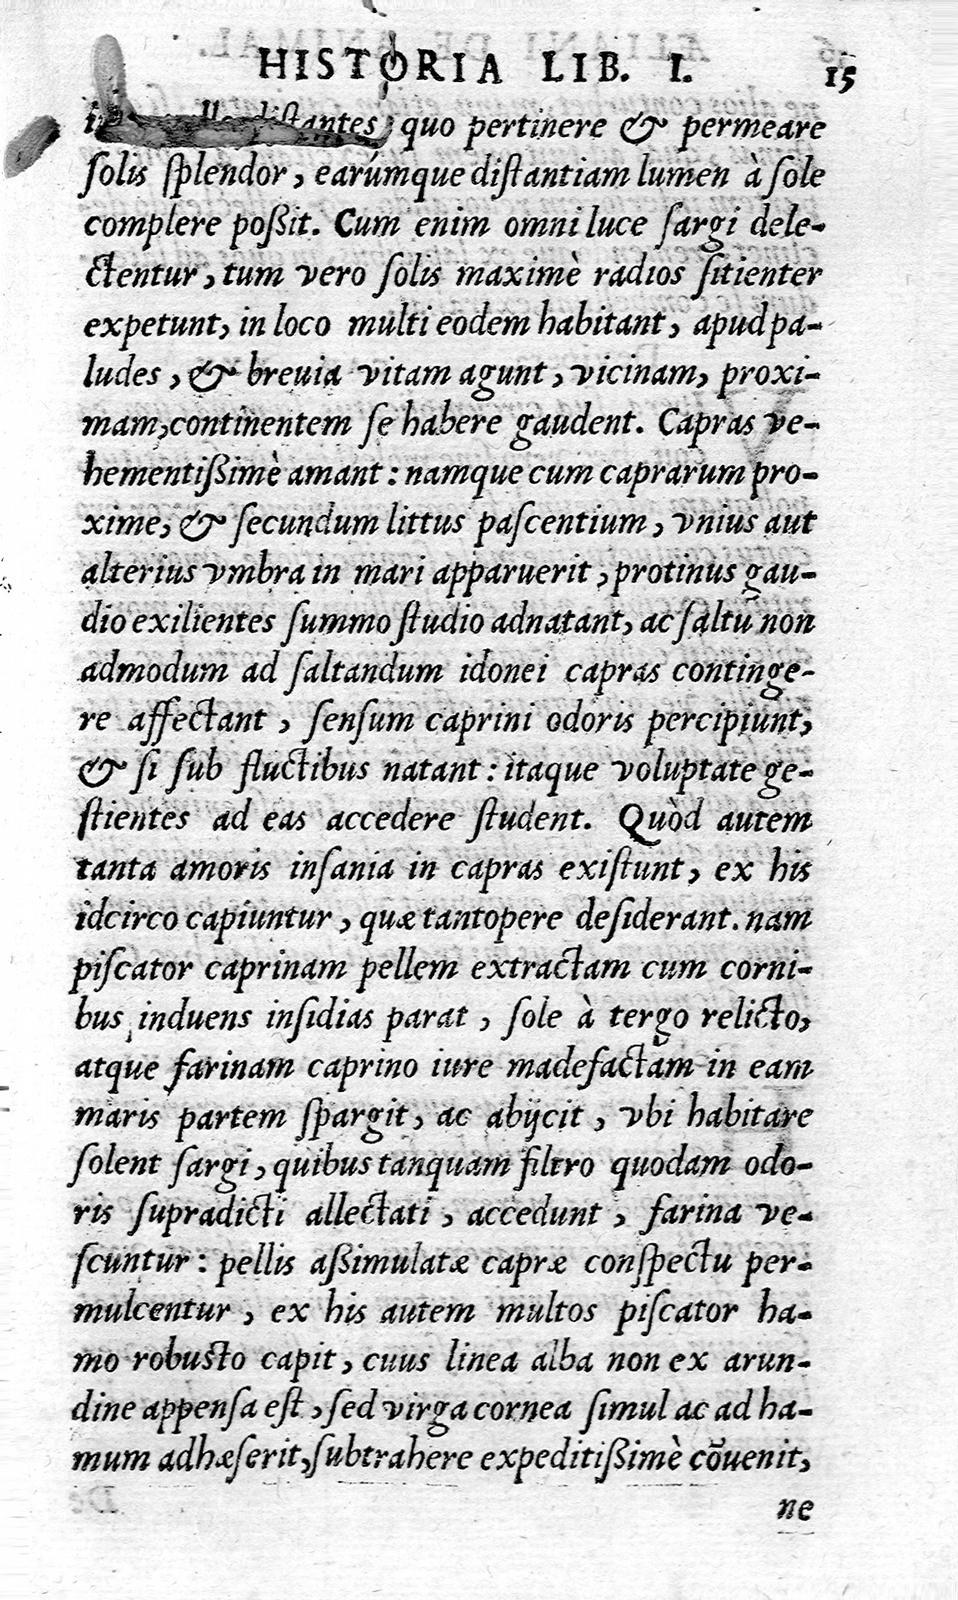 HISTORIA LIB. I. 15
distantes, quo pertinere & permeare
ſolis ſplendor, earúmque diſtantiam lumen à ſole
complere poßit. Cum enim omni luce ſargi dele-
ctentur, tum vero ſolis maximè radios ſitienter
expetunt, in loco multi eodem habitant, apud pa-
ludes, & breuia vitam agunt, vicinam, proxi-
mam, continentem ſe habere gaudent. Capras ve-
hementißimè amant: namque cum caprarum pro-
xime, & ſecundum littus paſcentium, vnius aut
alterius vmbra in mari apparuerit, protinus gau-
dio exilientes ſummo ſtudio adnatant, ac ſaltū non
admodum ad ſaltandum idonei capras continge-
re affectant, ſenſum caprini odoris percipiunt,
& ſi ſub fluctibus natant: itaque voluptate ge-
ſtientes ad eas accedere ſtudent. Quòd autem
tanta amoris inſania in capras exiſtunt, ex his
idcirco capiuntur, quæ tantopere deſiderant. nam
piſcator caprinam pellem extractam cum corni-
bus induens inſidias parat, ſole à tergo relicto,
atque farinam caprino iure madefactam in eam
maris partem ſpargit, ac abijcit, vbi habitare
ſolent ſargi, quibus tanquam filtro quodam odo-
ris ſupradicti allectati, accedunt, farina ve-
ſcuntur: pellis aßimulatæ capræ conſpectu per-
mulcentur, ex his autem multos piſcator ha-
mo robuſto capit, cuus linea alba non ex arun-
dine appenſa eſt, ſed virga cornea ſimul ac ad ha-
mum adhæſerit, ſubtrahere expeditißimè cōuenit,
ne